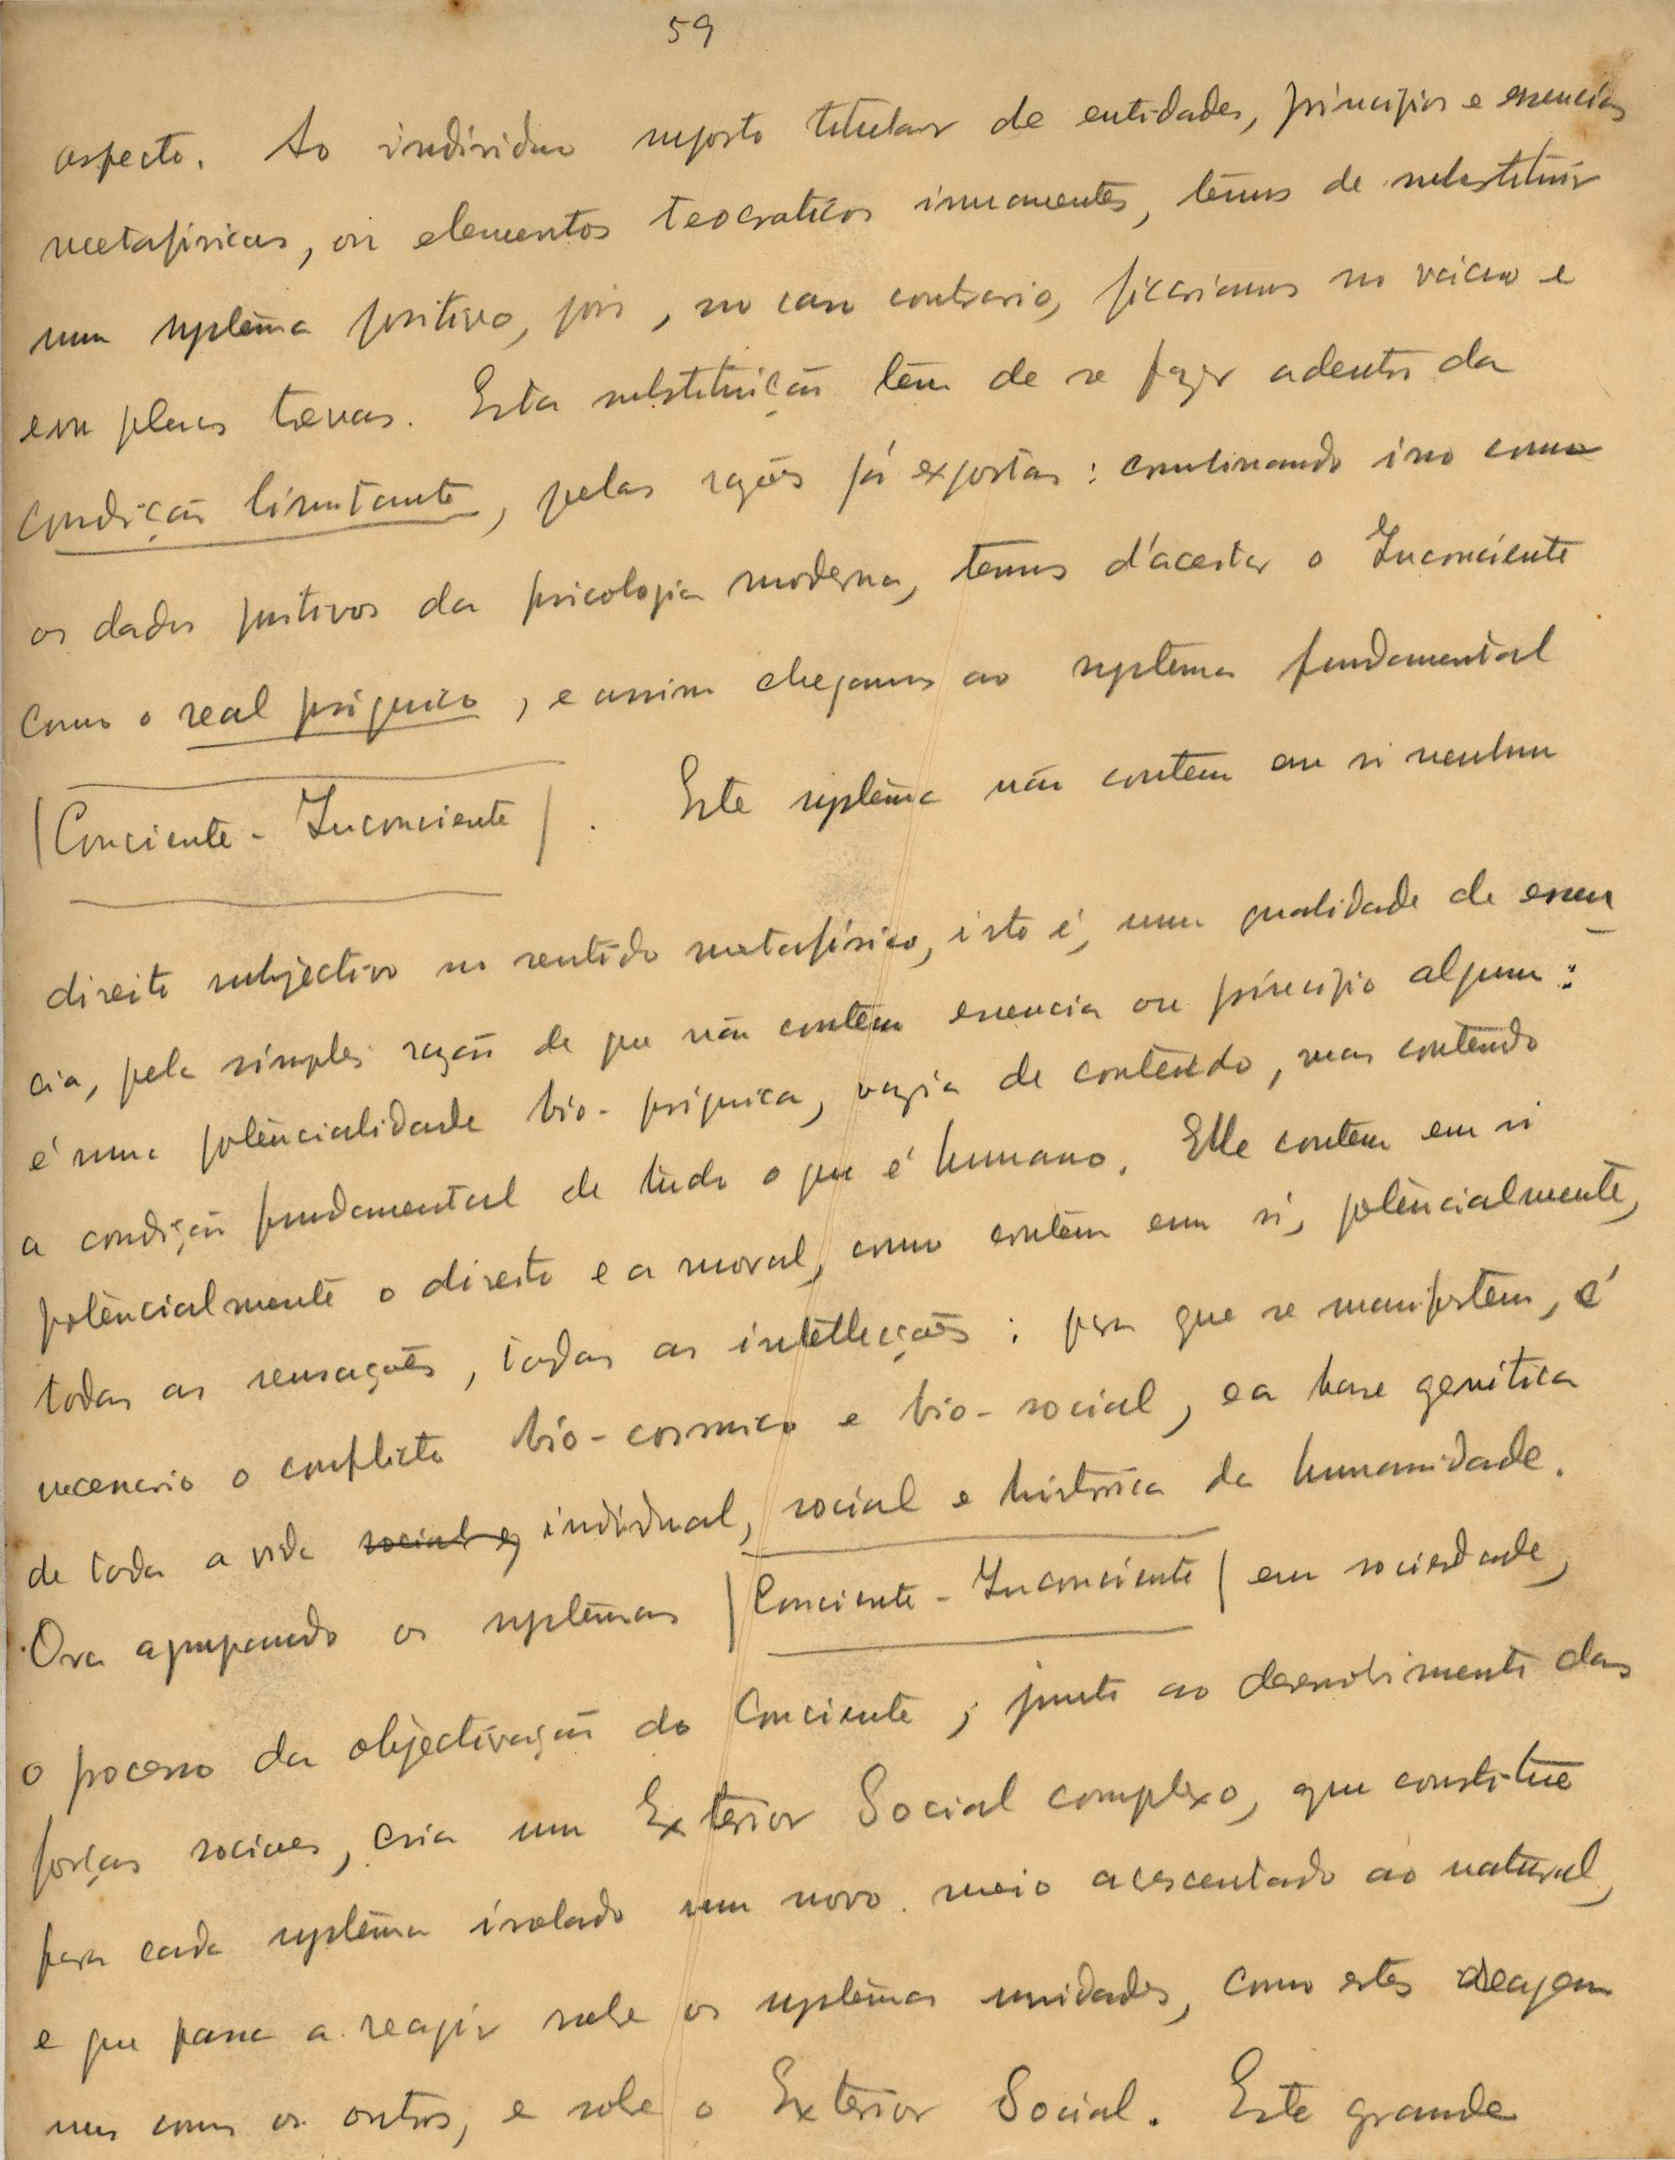 59
aspecto. Ao individuo suposto titular de entidades, principios e essencias
metafisicas, ou elementos teocraticos immanentes, têmos de substituir
um systêma positivo, pois, no caso contrario, ficariamos no vacuo e
em plenas trevas. Esta substituição têm de se fazer adentro da
condição limitante, pelas razões já expostas: combinando isso com
os dados positivos da psicologia moderna, temos d'aceitar o Inconciente
como o real psiquico, e assim chegamos ao systema fundamental
|Conciente - Inconciente|. Este systêma não contem em si nenhum
direito subjectivo no sentido metafísico, isto é, uma qualidade de essen
cia, pela simples razão de que não contêm essencia ou principio algum:
é uma potêncialidade bio-psiquica, vazia de conteúdo, mas contendo
a condição fundamental de tudo o que é humano. Elle contêm em si
potêncialmente o direito e a moral, como contêm em si, potêncialmente,
todas as sensações, todas as intellecções: para que se manifestem, é
necessario o conflicto bio-cosmico e bio-social, e a base genética
de toda a vida social e, individual, social e histórica da humanidade.
Ora agrupando os systêmas |Conciente - Inconciente| em sociedade,
o processo da objectivação do Conciente, junto ao desenvolvimento das
forças sociaes, cria um Exterior Social complexo, que constitue
para cada systêma isolado um novo meio acrescentado ao natural,
e que passa a reagir sobre os systêmas unidades, como estes reagem
uns com os outros, e sobre o Exterior Social. Este grande